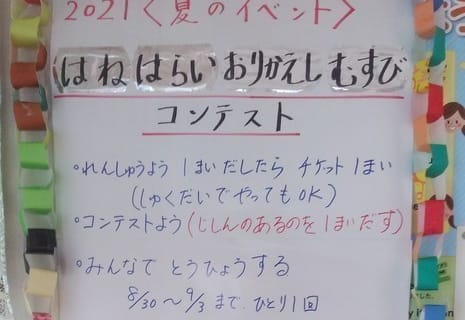 2021〈夏のイベント〉
はね はらい おりかえし むすび
コンテスト
・れんしゅうよう 1まいだしたら チケット1まい
(しゅくだいでやってもOK)
・コンテストよう(じしんのあるのを1まいだす)
・みんなで とうひょうする
8/30〜9/3まで ひとり1回